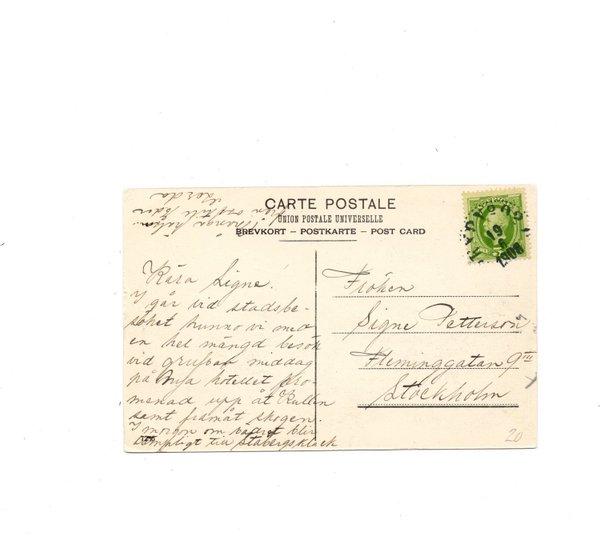 CARTE POSTALE
UNION POSTALE UNIVERSELLE
BREVKORT – POSTKARTE – POST CARD
19
1908
Kära Signe!
I går vid stadsbe-
söket hunno vi med
en hel mängd besök
vid grufvan middag
på Nya hotellet pro-
menad upp åt Kullen
samt
skogen.
I morgon om vädret blir
till Stabergsklack
många
Fröken
Signe Petterson
Fleminggatan 9
Stockholm
20